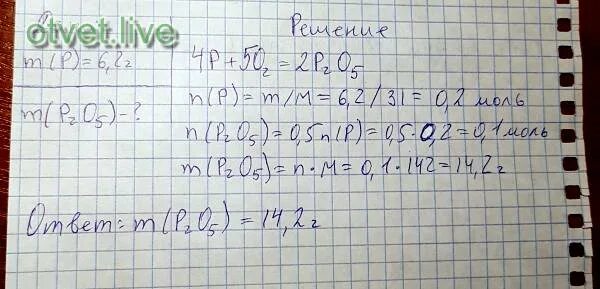 otvet.live
Решение
m(P)=6,2г
4P+5O₂=2P₂O₅
m(P₂O₅)-?
n(P)=m/M=6,2/31=0,2 моль
n(P₂O₅)=0,5n(P)=0,5·0,2=0,1 моль
m(P₂O₅)=n·M=0,1·142=14,2г
Ответ: m(P₂O₅)=14,2г